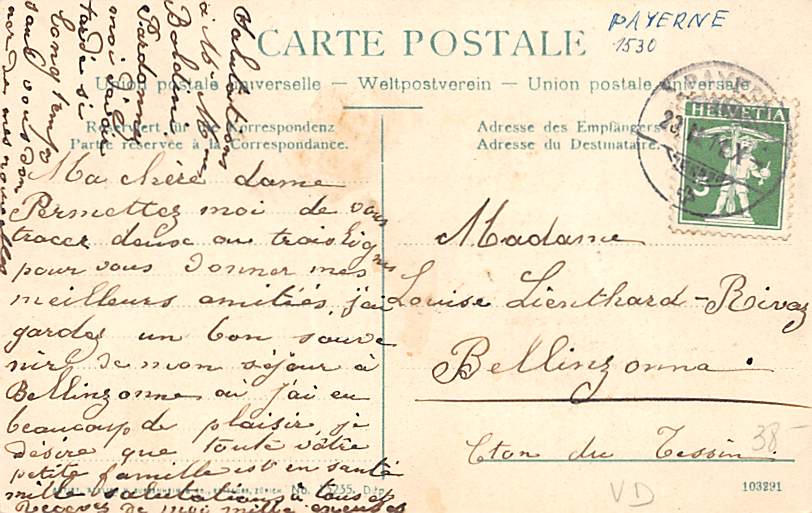 PAYERNE
1530
CARTE POSTALE
Union postale universelle — Weltpostverein — Union postale universale
Reserviert für die Korrespondenz
Partie réservée à la Correspondance.
Adresse des Empfängers
Adresse du Destinataire.
HELVETIA
5
Salutations
à Mr
Boldini
Pardonnez
moi
tardé si
longtemps
sans vous don
ner de mes nouvelles
Ma chère Dame
Permettez moi de vous
tracer deux ou trois lignes
pour vous donner mes
meilleurs amitiés, j'ai
gardez un bon souve
nir de mon séjour à
Bellinzonne où j'ai eu
beaucoup de plaisir, je
désire que toute vôtre
petite famille est en santé
mille salutations à tous et
Recevez de moi mille
Madame
Louise Lienthard-Rivaz
Bellinzonna.
Cton du Tessin
38-
VD
No. 13235. Dép.
103291